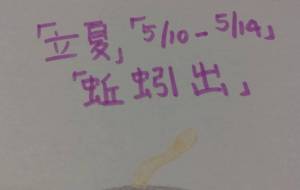 「立夏」「5/10-5/14」
「蚯蚓出」